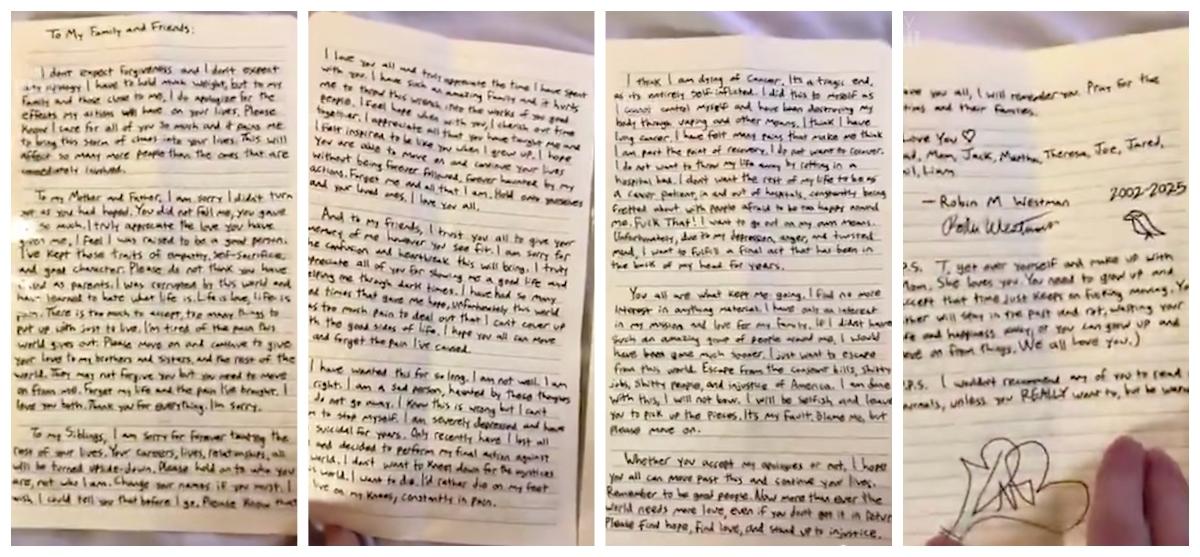 To My Family and Friends:
I don't expect forgiveness and I don't expect
any apology I have to hold much weight, but to my
family and those close to me, I do apologize for the
effects my actions will have on your lives. Please
Know I care for all of you so much and it pains me
to bring this storm of chaos into your lives. This will
affect so many more people than the ones that are
immediately involved.
To my Mother and Father, I am sorry I didn't turn
out as you had hoped. You did not fail me, you gave
so much. I truly appreciate the love you have
given me, I feel I was raised to be a good person.
I've kept those traits of empathy, self-sacrifice,
and good character. Please do not think you have
failed as parents. I was corrupted by this world and
have learned to hate what life is. Life is love, life is
pain. There is too much to accept, too many things to
put up with just to live. I'm tired of the pain this
world gives out. Please move on and continue to give
your love to my brothers and sisters, and the rest of the
world. They may not forgive you but you need to move
on from me. Forget my life and the pain I've brought. I
love you both. Thank you for everything. I'm sorry.
To my Siblings, I am sorry for forever tainting the
rest of your lives. Your careers, lives, relationships, all
will be turned upside-down. Please hold on to who you
are, not who I am. Change your names if you must. I
wish I could tell you that before I go. Please Know that
I love you all and truly appreciate the time I have spent
with you. I have such an amazing family and it hurts
me to throw this wrench into the works of you good
people. I feel hope when with you, I cherish our time
together. I appreciate all that you have taught me and
I felt inspired to be like you when I grew up. I hope
you are able to move on and continue your lives
without being forever followed, forever haunted by my
actions. Forget me and all that I am. Hold onto yourselves
and your loved ones. I love you all.
And to my friends, I trust you all to give your
memory of me however you see fit. I am sorry for
the confusion and heartbreak this will bring. I truly
appreciate all of you for showing me a good life and
helping me through dark times. I have had so many
good times that gave me hope. Unfortunately this world
has too much pain to deal out that I can't cover up
with the good sides of life. I hope you all can move
and forget the pain I've caused.
I have wanted this for so long. I am not well. I am
right. I am a sad person, haunted by these thoughts
do not go away. I know this is wrong but I can't
to stop myself. I am severely depressed and have
suicidal for years. Only recently have I lost all
and decided to perform my final action against
world. I don't want to Kneel down for the injustices
world. I want to die. I'd rather die on my feet
live on my knees, constantly in pain.
I think I am dying of cancer. It's a tragic end,
as it's entirely self-inflicted. I did this to myself as
I cannot control myself and have been destroying my
body through vaping and other means. I think I have
lung cancer. I have felt many pains that make me think
I am past the point of recovery. I do not want to conver.
I do not want to throw my life away by rotting in a
hospital bed. I don't want the rest of my life to be as
a cancer patient, in and out of hospitals, constantly being
fretted about with people afraid to be too happy around
me. Fuck That! I want to go out on my own means.
Unfortunately, due to my depression, anger, and twisted
mind, I want to fulfill a final act that has been in
the back of my head for years.
You all are what kept me going. I find no more
interest in anything material. I have only an interest
in my mission and love for my family. If I didn't have
such an amazing group of people around me, I would
have been gone much sooner. I just want to escape
from this world. Escape from the constant bills, shitty
jobs, shitty people, and injustice of America. I am done
with this, I will not bow. I will be selfish and leave
you to pick up the pieces. Its my fault. Blame me, but
please move on.
Whether you accept my apologies or not, I hope
you all can move past this and continue your lives.
Remember to be good people. Now more than ever the
world needs more love, even if you don't get it in return
Please find hope, find love, and stand up to injustice.
you all, I will remember you. Pray for the
and their families.
Love You ♡
Mom, Jack, Martha, Theresa, Joe, Jared,
Liam
— Robin M Westman 2002-2025
Robin Westman
P.S. T, get over yourself and make up with
Mom. She loves you. You need to grow up and
accept that time just keeps on fucking moving. You
either will stay in the past and rot, wasting your
life and happiness away, or you can grow up and
move on from things. We all love you.)
P.S. I wouldn't recommend any of you to read
journals, unless you REALLY want to, but be warned